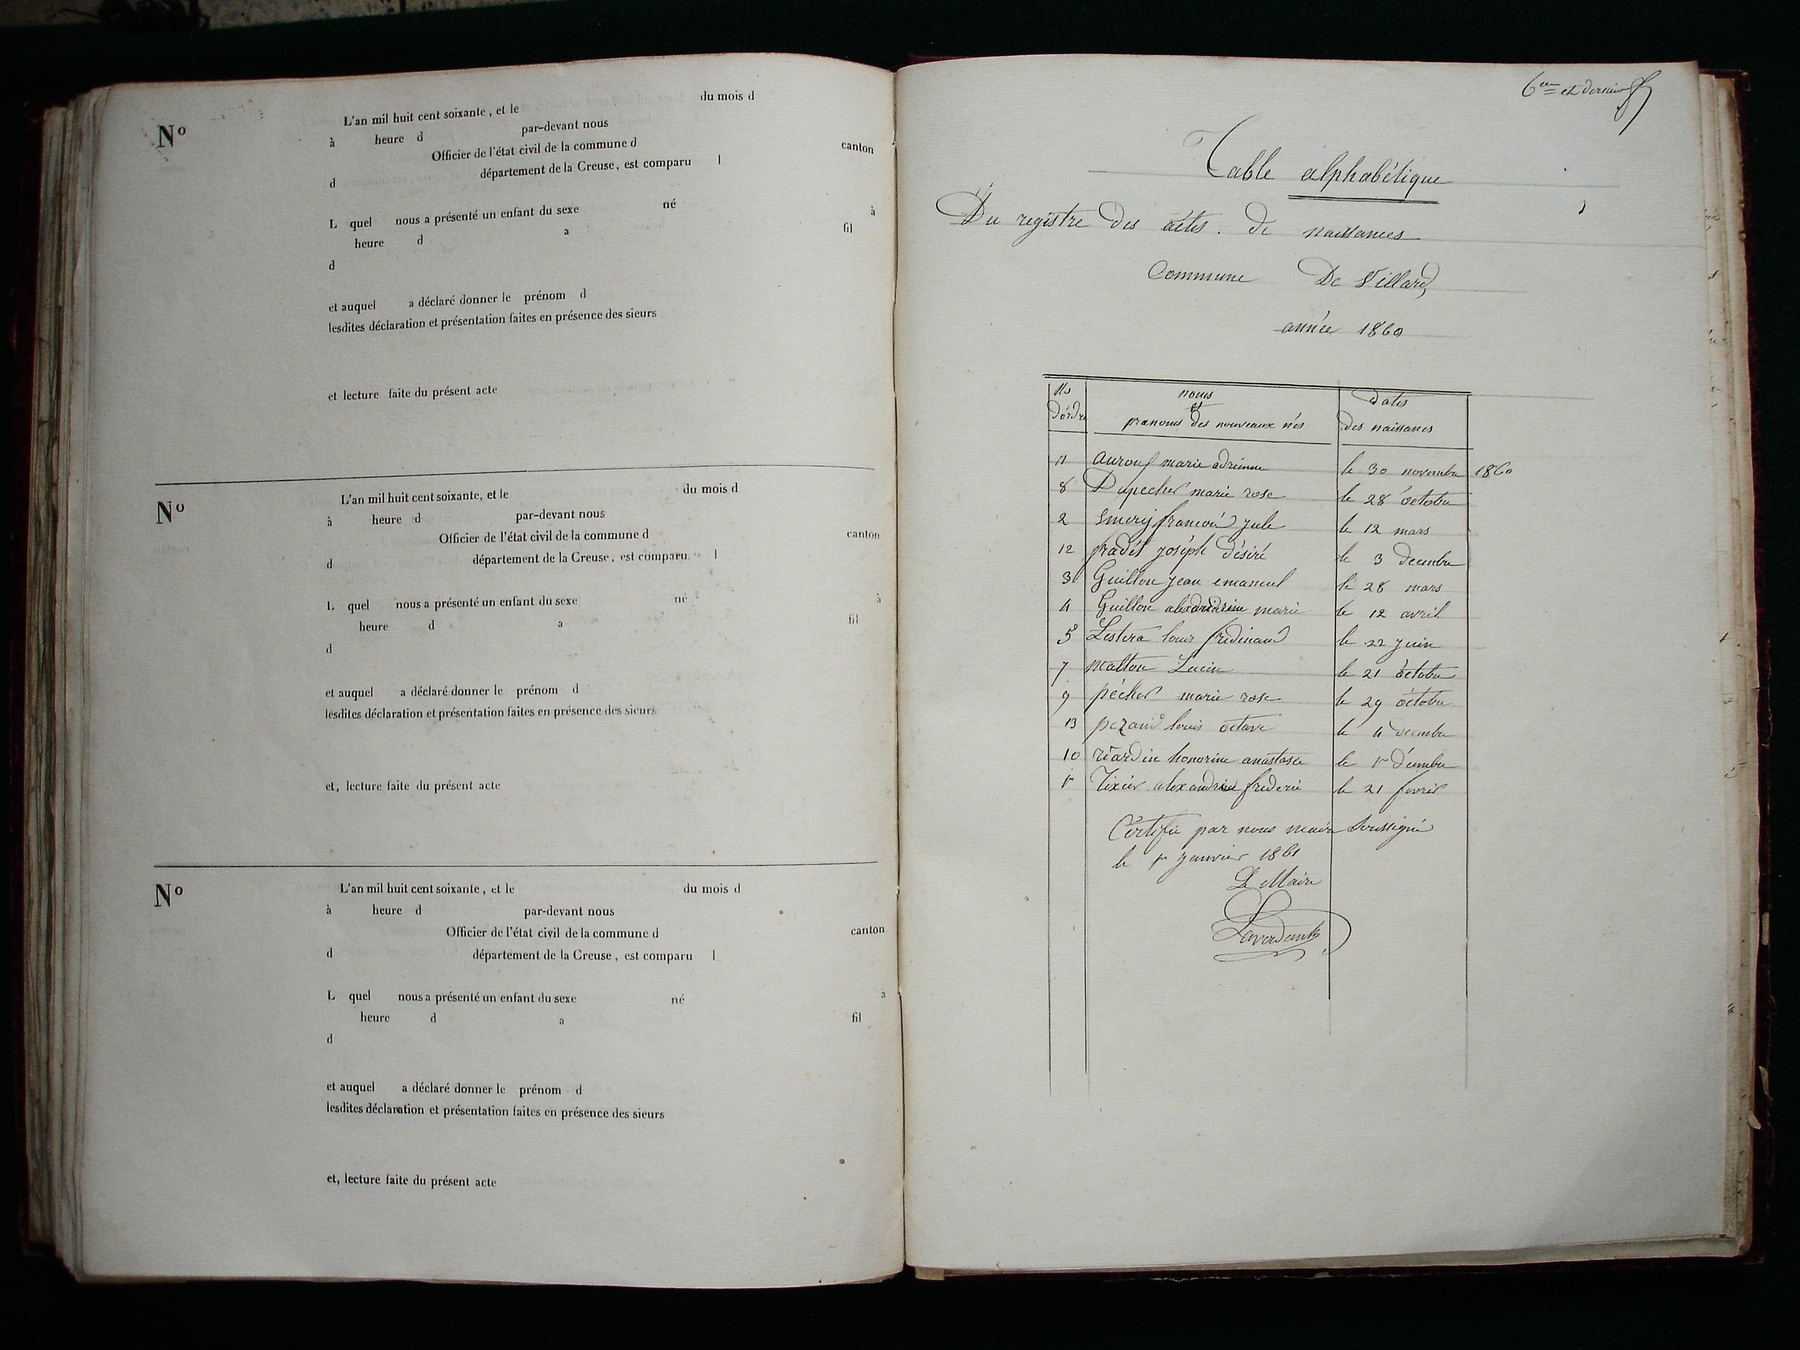 Nº
L'an mil huit cent soixante, et le du mois d
à heure d par-devant nous
Officier de l'état civil de la commune d canton
d département de la Creuse, est comparu l
L quel nous a présenté un enfant du sexe né à
heure d a fil
d
et auquel a déclaré donner le prénom d
lesdites déclaration et présentation faites en présence des sieurs
et lecture faite du présent acte
Nº
L'an mil huit cent soixante, et le du mois d
à heure d par-devant nous
Officier de l'état civil de la commune d canton
d département de la Creuse, est comparu l
L quel nous a présenté un enfant du sexe né à
heure d a fil
d
et auquel a déclaré donner le prénom d
lesdites déclaration et présentation faites en présence des sieurs
et, lecture faite du présent acte
Nº
L'an mil huit cent soixante, et le du mois d
à heure d par-devant nous
Officier de l'état civil de la commune d canton
d département de la Creuse, est comparu l
L quel nous a présenté un enfant du sexe né à
heure d a fil
d
et auquel a déclaré donner le prénom d
lesdites déclaration et présentation faites en présence des sieurs
et, lecture faite du présent acte
6eme et dernier
Table alphabétique
Du registre des actes de naissances
Commune De Villard
année 1860
Nos d'ordre
noms et pranoms des nouveaux nés
dates des naissances
11 marie adrienne le 30 novembre 1860
8 Dupecher marie rose le 28 octobre
2 Emery francois jule le 12 mars
12 pradet joseph désiré le 3 decembre
3 Guillon jean emanuel le 28 mars
4 Guillon marie le 12 avril
5 Lestera louis fredinand le 22 juin
7 malton Lucien le 21 octobre
9 pécher marie rose le 29 octobre
13 pezand louis octave le 4 decembre
10 riardin honorine anastasie le 1r décembre
1r Tixier alexandre frederic le 21 fevrier
Certifié par nous maire soussigné
le 1r janvier 1861
Le Maire